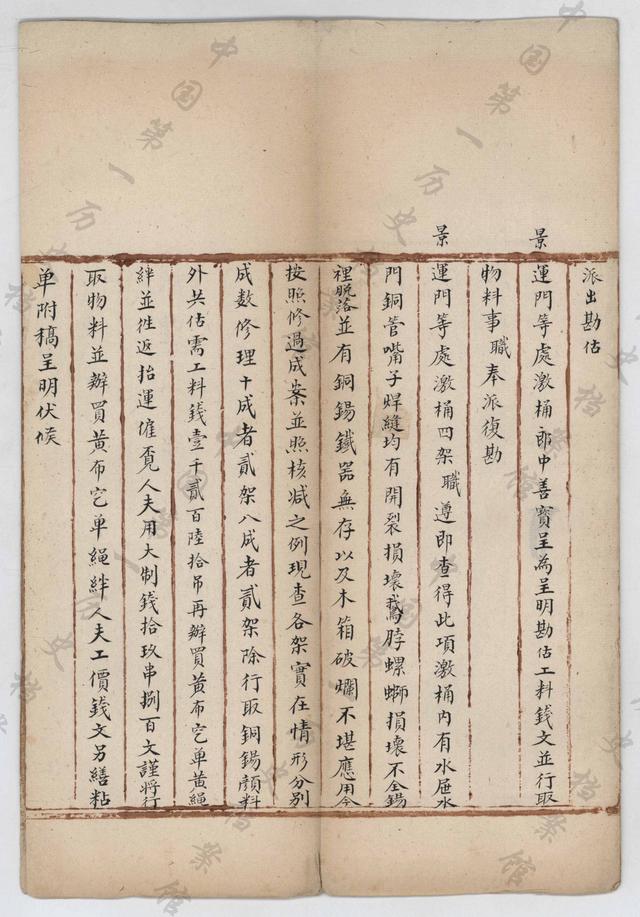 派出勘估
景
運門等處激桶郎中善寶呈為呈明勘估工料錢文並行取
物料事職奉派復勘
景
運門等處激桶四架職遵即查得此項激桶內有水屉水
門銅管嘴子焊縫均有開裂損壞鵞脖螺螄損壞不全錫
裡脫落並有銅錫鐵器無存以及木箱破爛不堪應用今
按照修過成案並照核減之例現查各架實在情形分別
成數修理十成者貳架八成者貳架除行取銅錫顏料
外共估需工料錢壹千貳百陸拾吊再辦買黃布穵单黃繩
絆並往返抬運僱覔人夫用大制錢拾玖串捌百文謹將行
取物料並辦買黃布穵单繩絆人夫工價錢文另繕粘
单附稿呈明伏候
中国第一历史档案馆